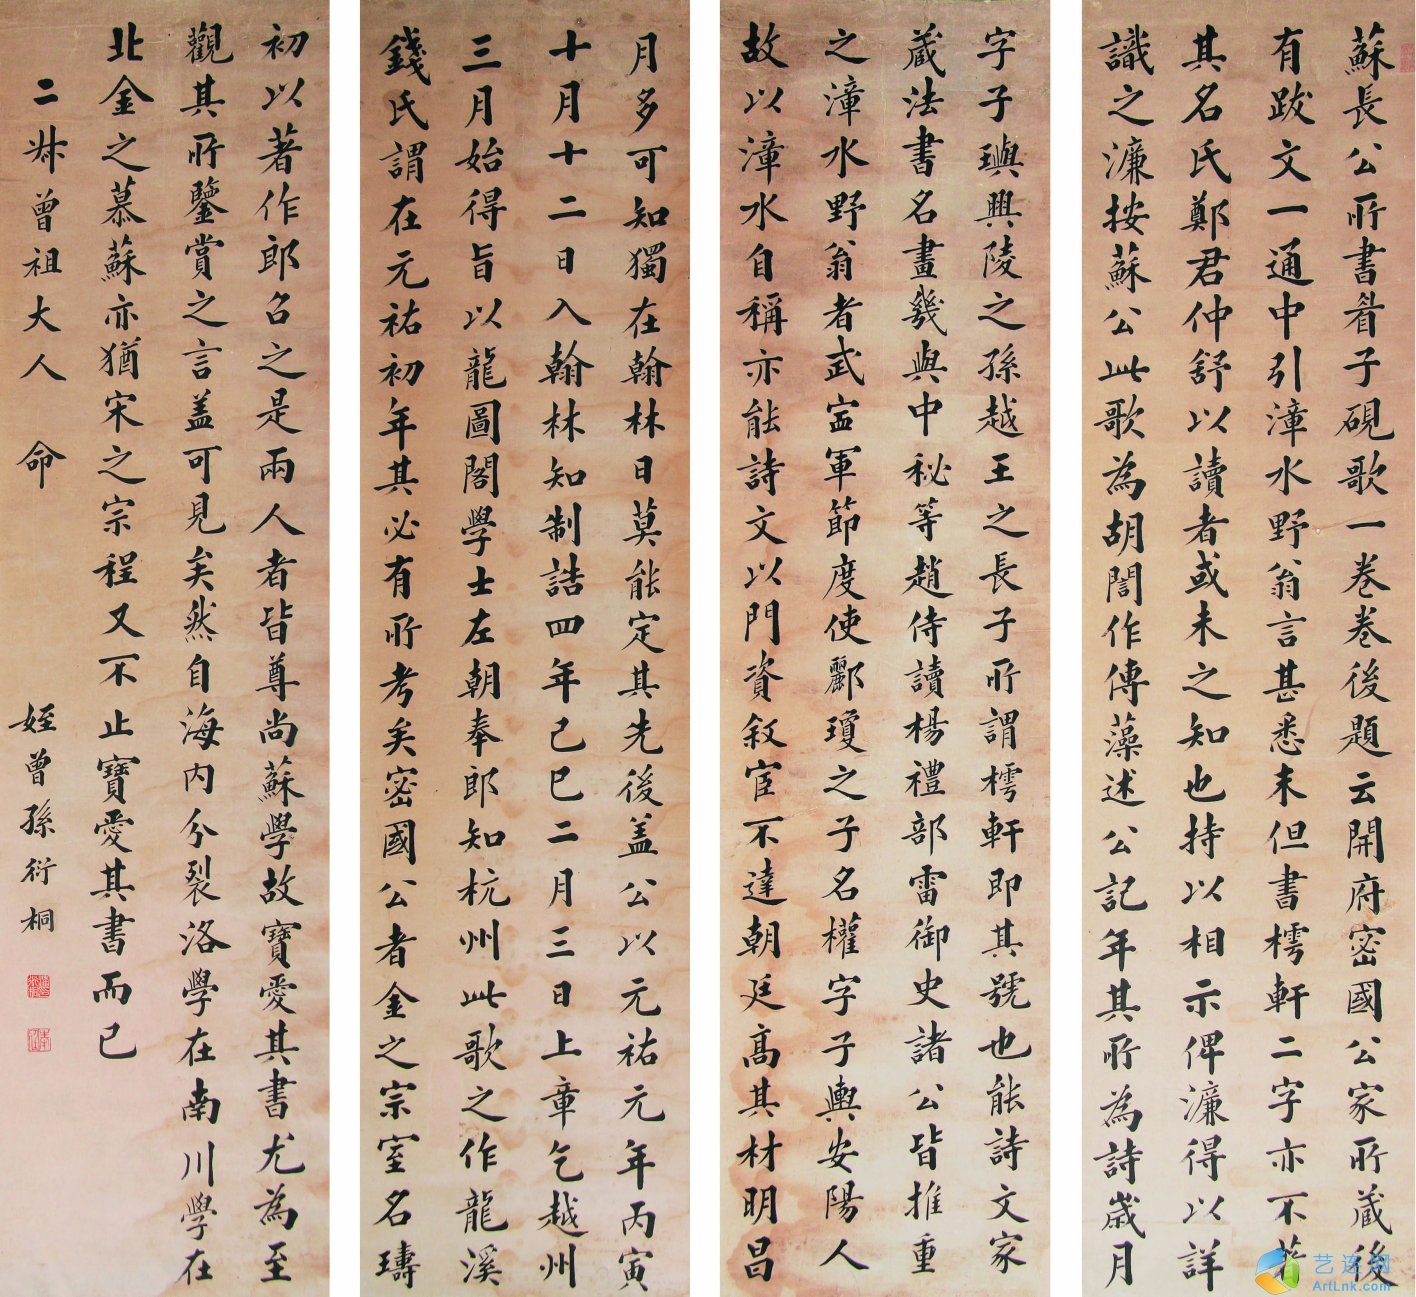 蘇長公所書眉子硯歌一卷卷後題云開府密國公家所藏後
有跋文一通中引漳水野翁言甚悉末但書樗軒二字亦不著
其名氏鄭君仲舒以讀者或未之知也持以相示俾濂得以詳
識之濂按蘇公此歌為胡誾作傅藻述公記年其所為詩歲月
字子璵興陵之孫越王之長子所謂樗軒即其號也能詩文家
藏法書名畫幾與中秘等趙侍讀楊禮部雷御史諸公皆推重
之漳水野翁者武寍軍節度使酈瓊之子名權字子輿安陽人
故以漳水自稱亦能詩文以門資叙宦不達朝廷高其材明昌
月多可知獨在翰林日莫能定其先後盖公以元祐元年丙寅
十月十二日入翰林知制誥四年己巳二月三日上章乞越州
三月始得旨以龍圖閣學士左朝奉郎知杭州此歌之作龍溪
錢氏謂在元祐初年其必有所考矣密國公者金之宗室名璹
初以著作郎召之是兩人者皆尊尚蘇學故寶愛其書尤為至
觀其所鑒賞之言盖可見矣然自海内分裂洛學在南川學在
北金之慕蘇亦猶宋之宗程又不止寶愛其書而已
二叔曾祖大人 命
姪曾孫衍桐
艺连网
ArtLnk.com